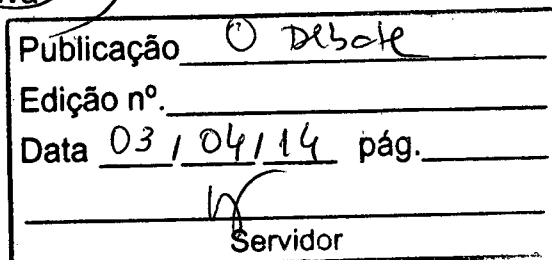 Publicação O Debate
Edição nº.
Data 03 / 04 / 14 pág.
Servidor